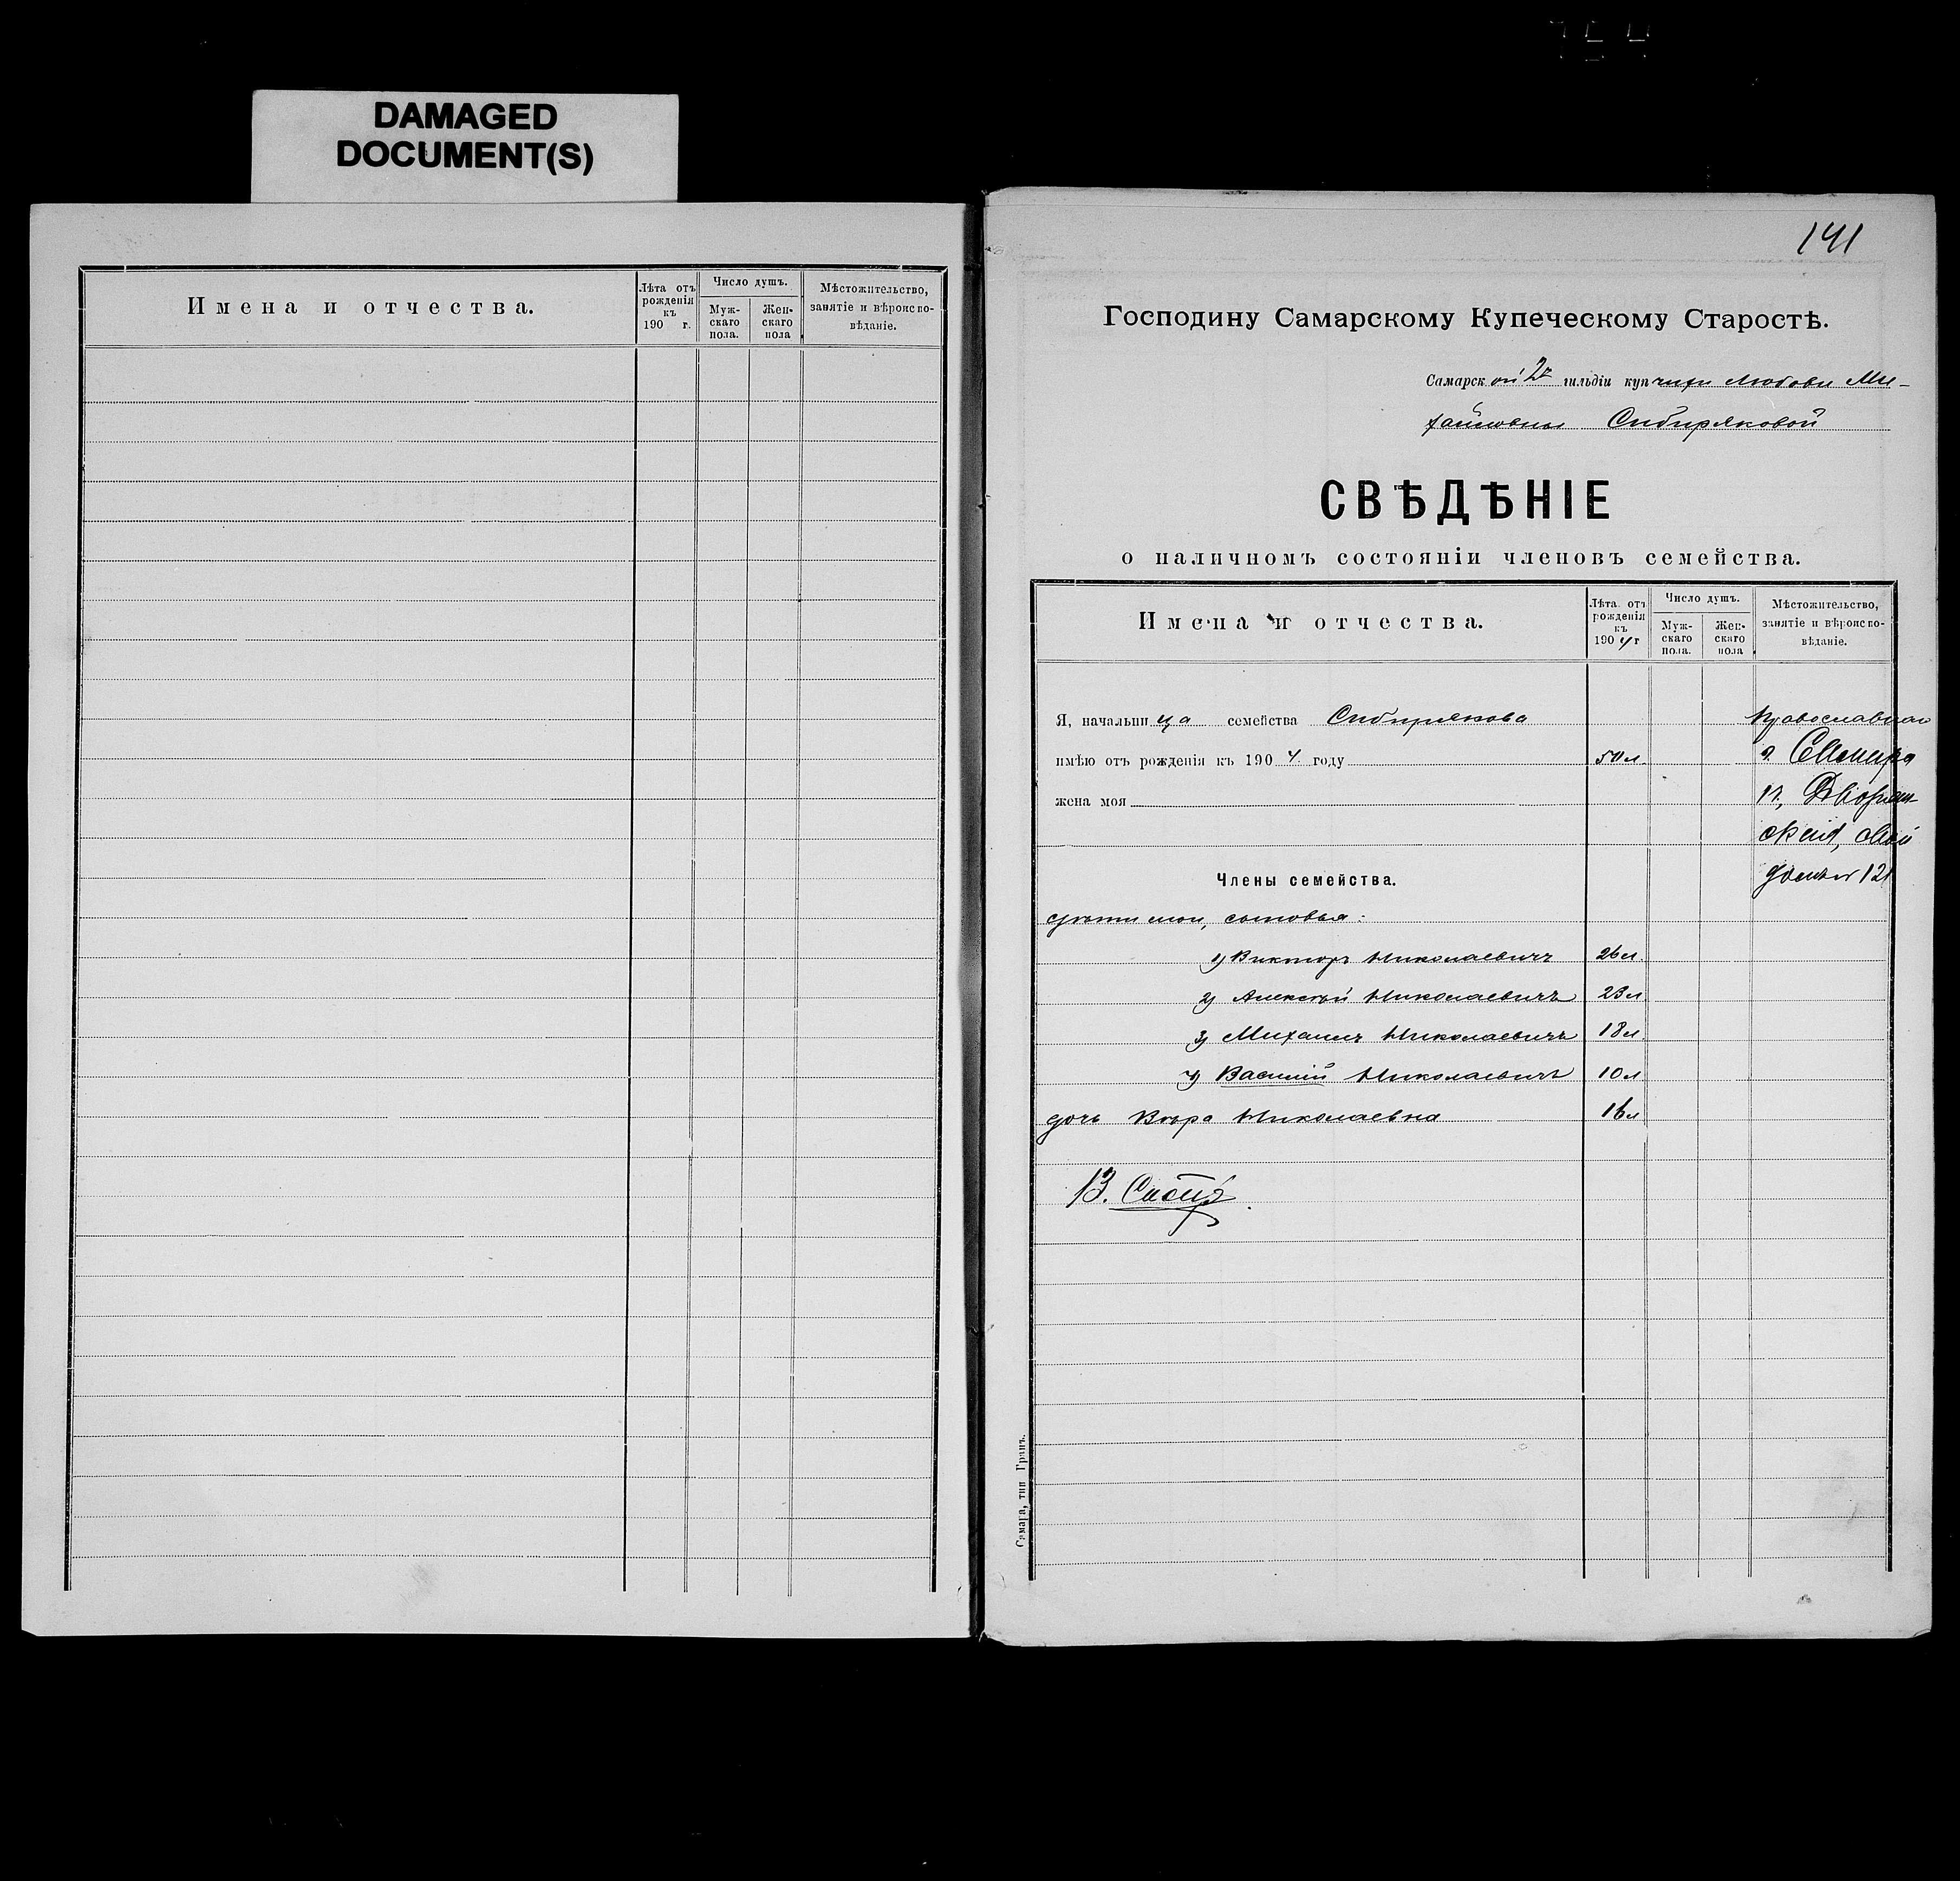 DAMAGED
DOCUMENT(S)
Имена и отчества.
Лѣта отъ рожденія къ 190 г.
Число душъ.
Мужскаго пола.
Женскаго пола
Мѣстожительство, занятіе и вѣроисповѣданіе.
141
Господину Самарскому Купеческому Старостѣ.
Самарской 2й гильдіи купчихи Любови Ми-
хайловны Сибиряковой
СВѢДѢНІЕ
о наличномъ состояніи членовъ семейства.
Имена и отчества.
Лѣта отъ рожденія къ 1904 г
Число душъ.
Мужскаго пола.
Женскаго пола
Мѣстожительство, занятіе и вѣроисповѣданіе.
Я, начальница семейства Сибирякова
Православная
имѣю отъ рожденія къ 1904 году 50 л.
г. Самара
жена моя
Дворян-
ская, свой
Члены семейства.
домъ 121
дѣти мои, сыновья:
1) Викторъ Николаевичъ 26 л.
2) Алексѣй Николаевичъ 23 л
3) Михаилъ Николаевичъ 18 л.
4) Василій Николаевичъ 10 л
дочь Вѣра Николаевна 16 л
В. Сиби
Самара, тип Гранъ.